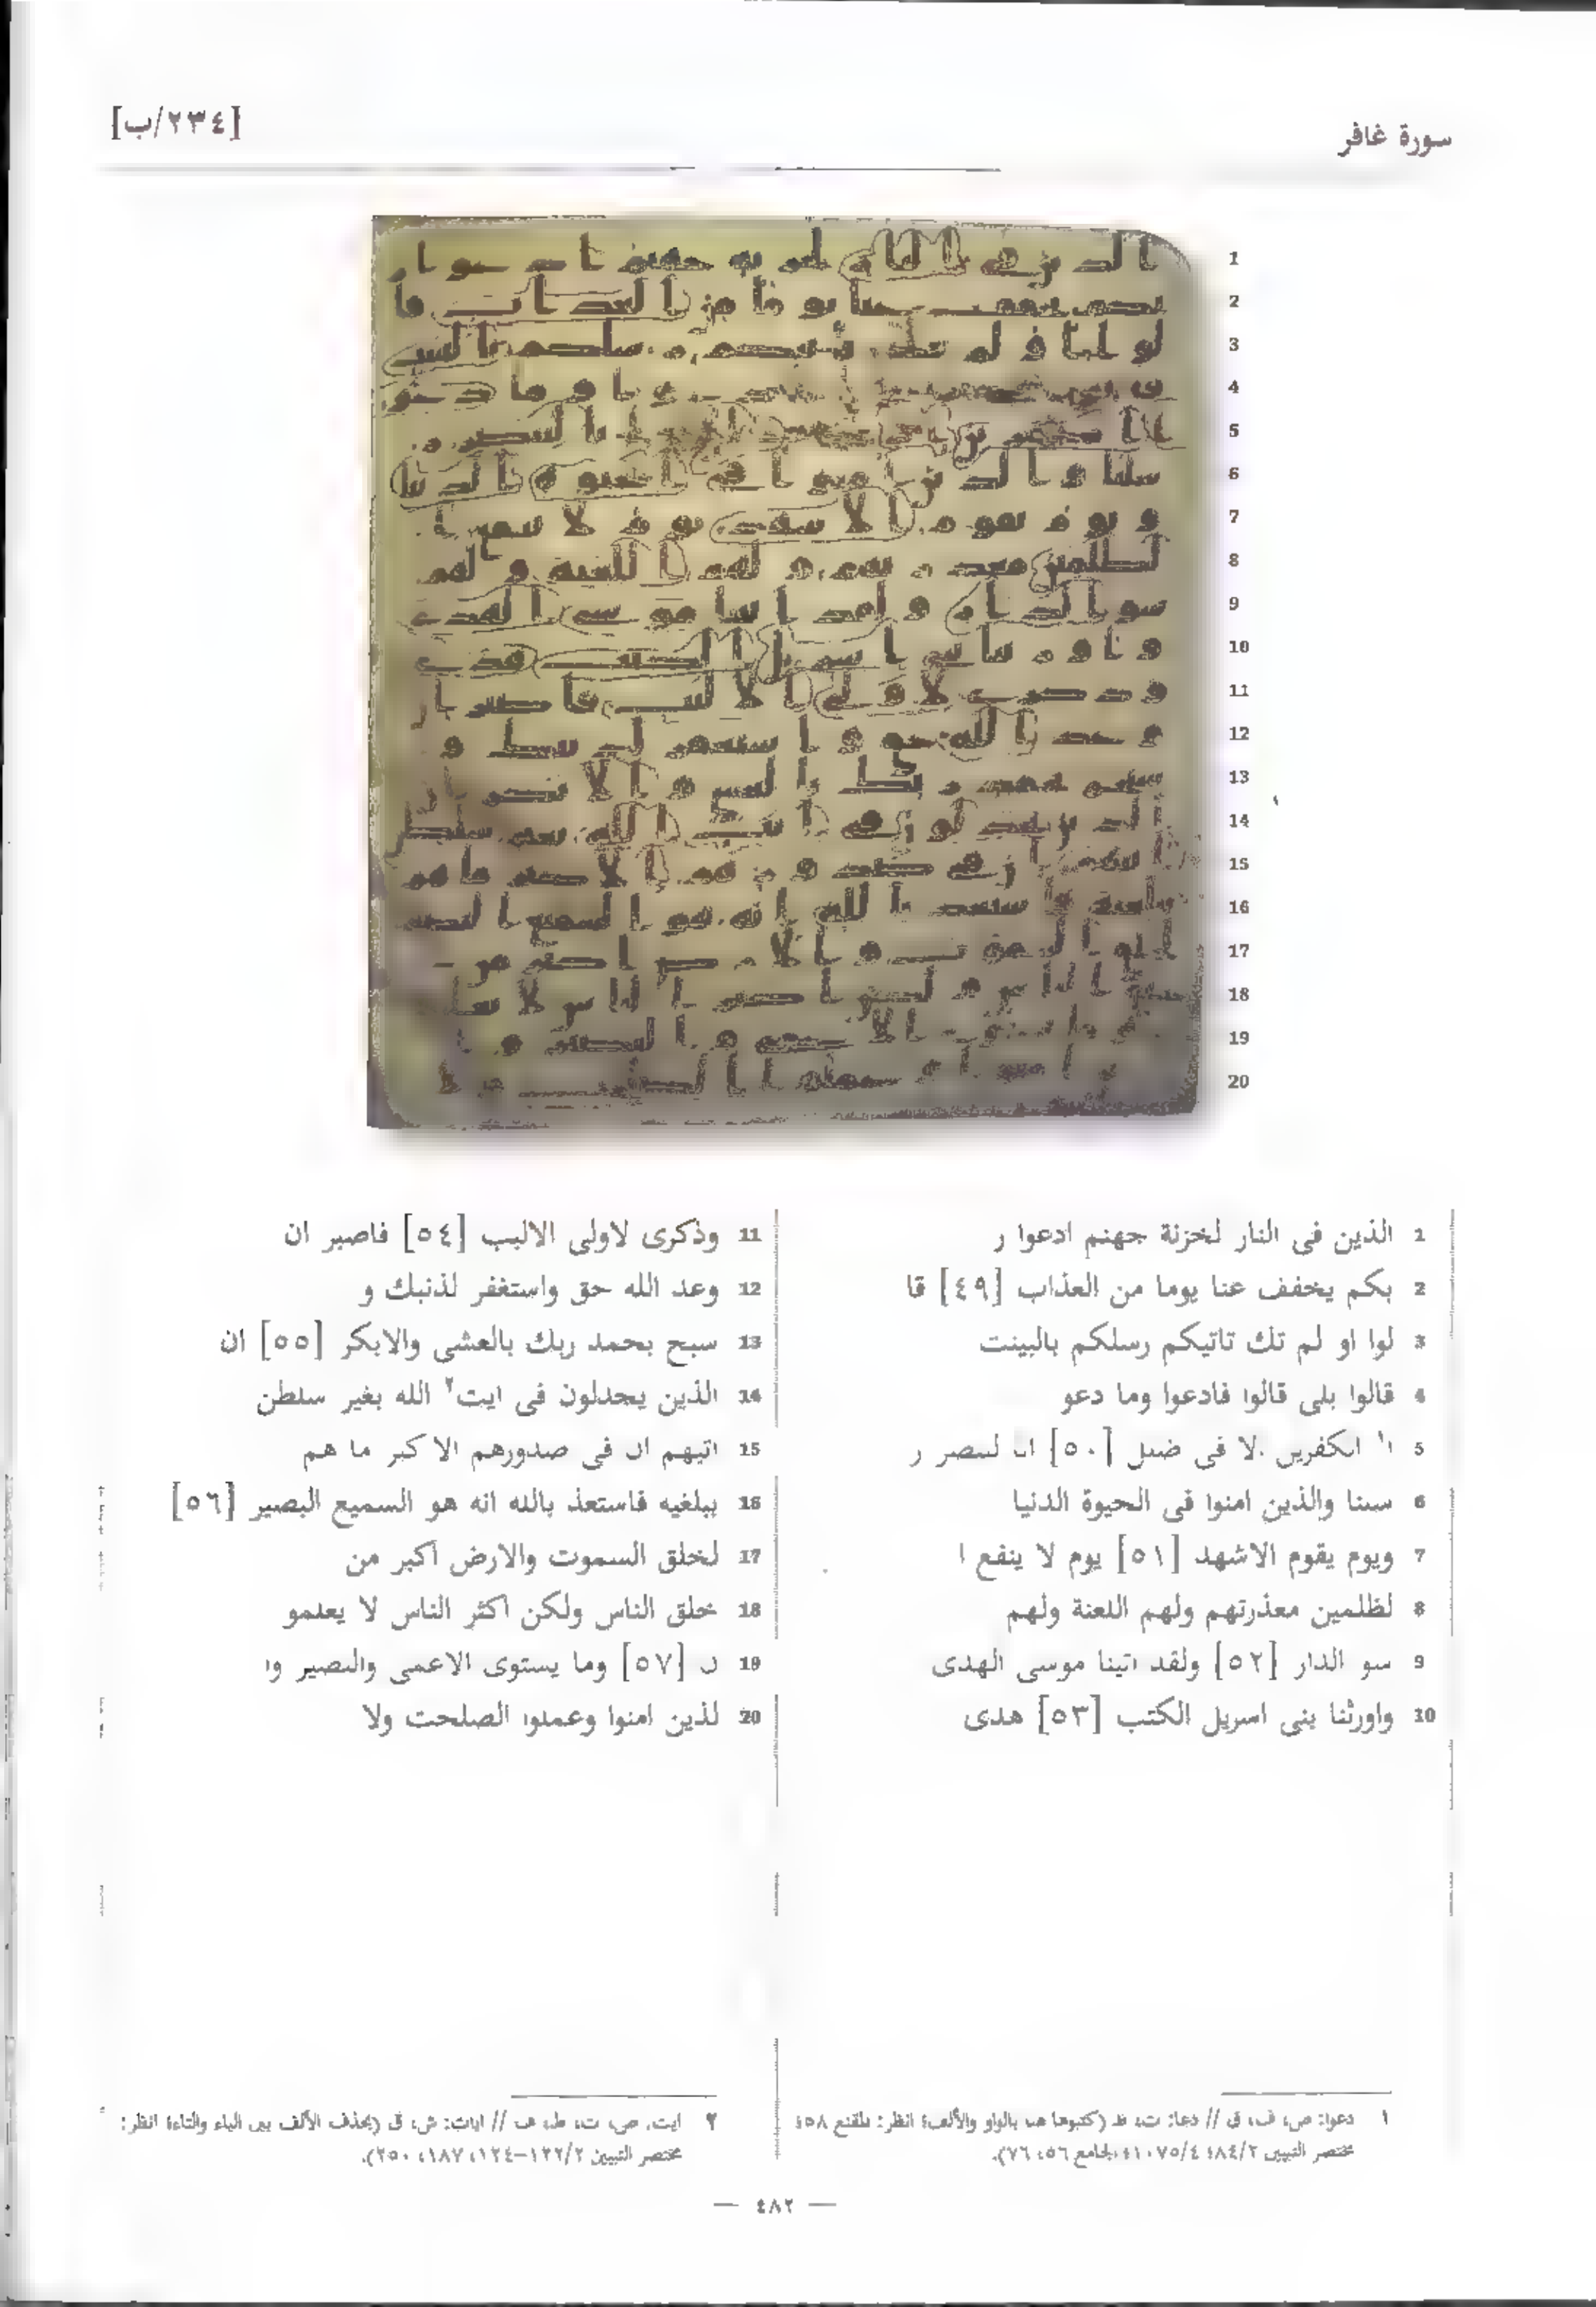 سورة غافر
[٢٣٤/ب]
1 الذين فى النار لخزنة جهنم ادعوا ر
2 بكم يخفف عنا يوما من العذاب [٤٩] قا
3 لوا او لم تك تاتيكم رسلكم بالبينت
4 قالوا بلى قالوا فادعوا وما دعو
5 ا١ الكفرين الا فى ضلل [٥٠] انا لننصر ر
6 سلنا والذين امنوا فى الحيوة الدنيا
7 ويوم يقوم الاشهد [٥١] يوم لا ينفع ا
8 لظلمين معذرتهم ولهم اللعنة ولهم
9 سو الدار [٥٢] ولقد اتينا موسى الهدى
10 واورثنا بنى اسريل الكتب [٥٣] هدى
11 وذكرى لاولى الالبب [٥٤] فاصبر ان
12 وعد الله حق واستغفر لذنبك و
13 سبح بحمد ربك بالعشى والابكر [٥٥] ان
14 الذين يجدلون فى ايت٢ الله بغير سلطن
15 اتيهم ان فى صدورهم الا كبر ما هم
16 ببلغيه فاستعذ بالله انه هو السميع البصير [٥٦]
17 لخلق السموت والارض اكبر من
18 خلق الناس ولكن اكثر الناس لا يعلمو
19 ن [٥٧] وما يستوى الاعمى والبصير وا
20 لذين امنوا وعملوا الصلحت ولا
١ دعوا: ص، ف، ق // دعا: ت، ط (كتبوها هنا بالواو والألف؛ انظر: المقنع ٥٨؛
مختصر التبيين ٨٤/٢؛ ١٠٧٥/٤؛ الجامع ٥٦، ٧٦).
٢ ايت: ص، ت، ط، ف // ايات: ش، ق (بحذف الألف بين الياء والتاء؛ انظر:
مختصر التبيين ١٢٢/٢-١٢٤، ١٨٧، ٢٥٠).
— ٤٨٢ —